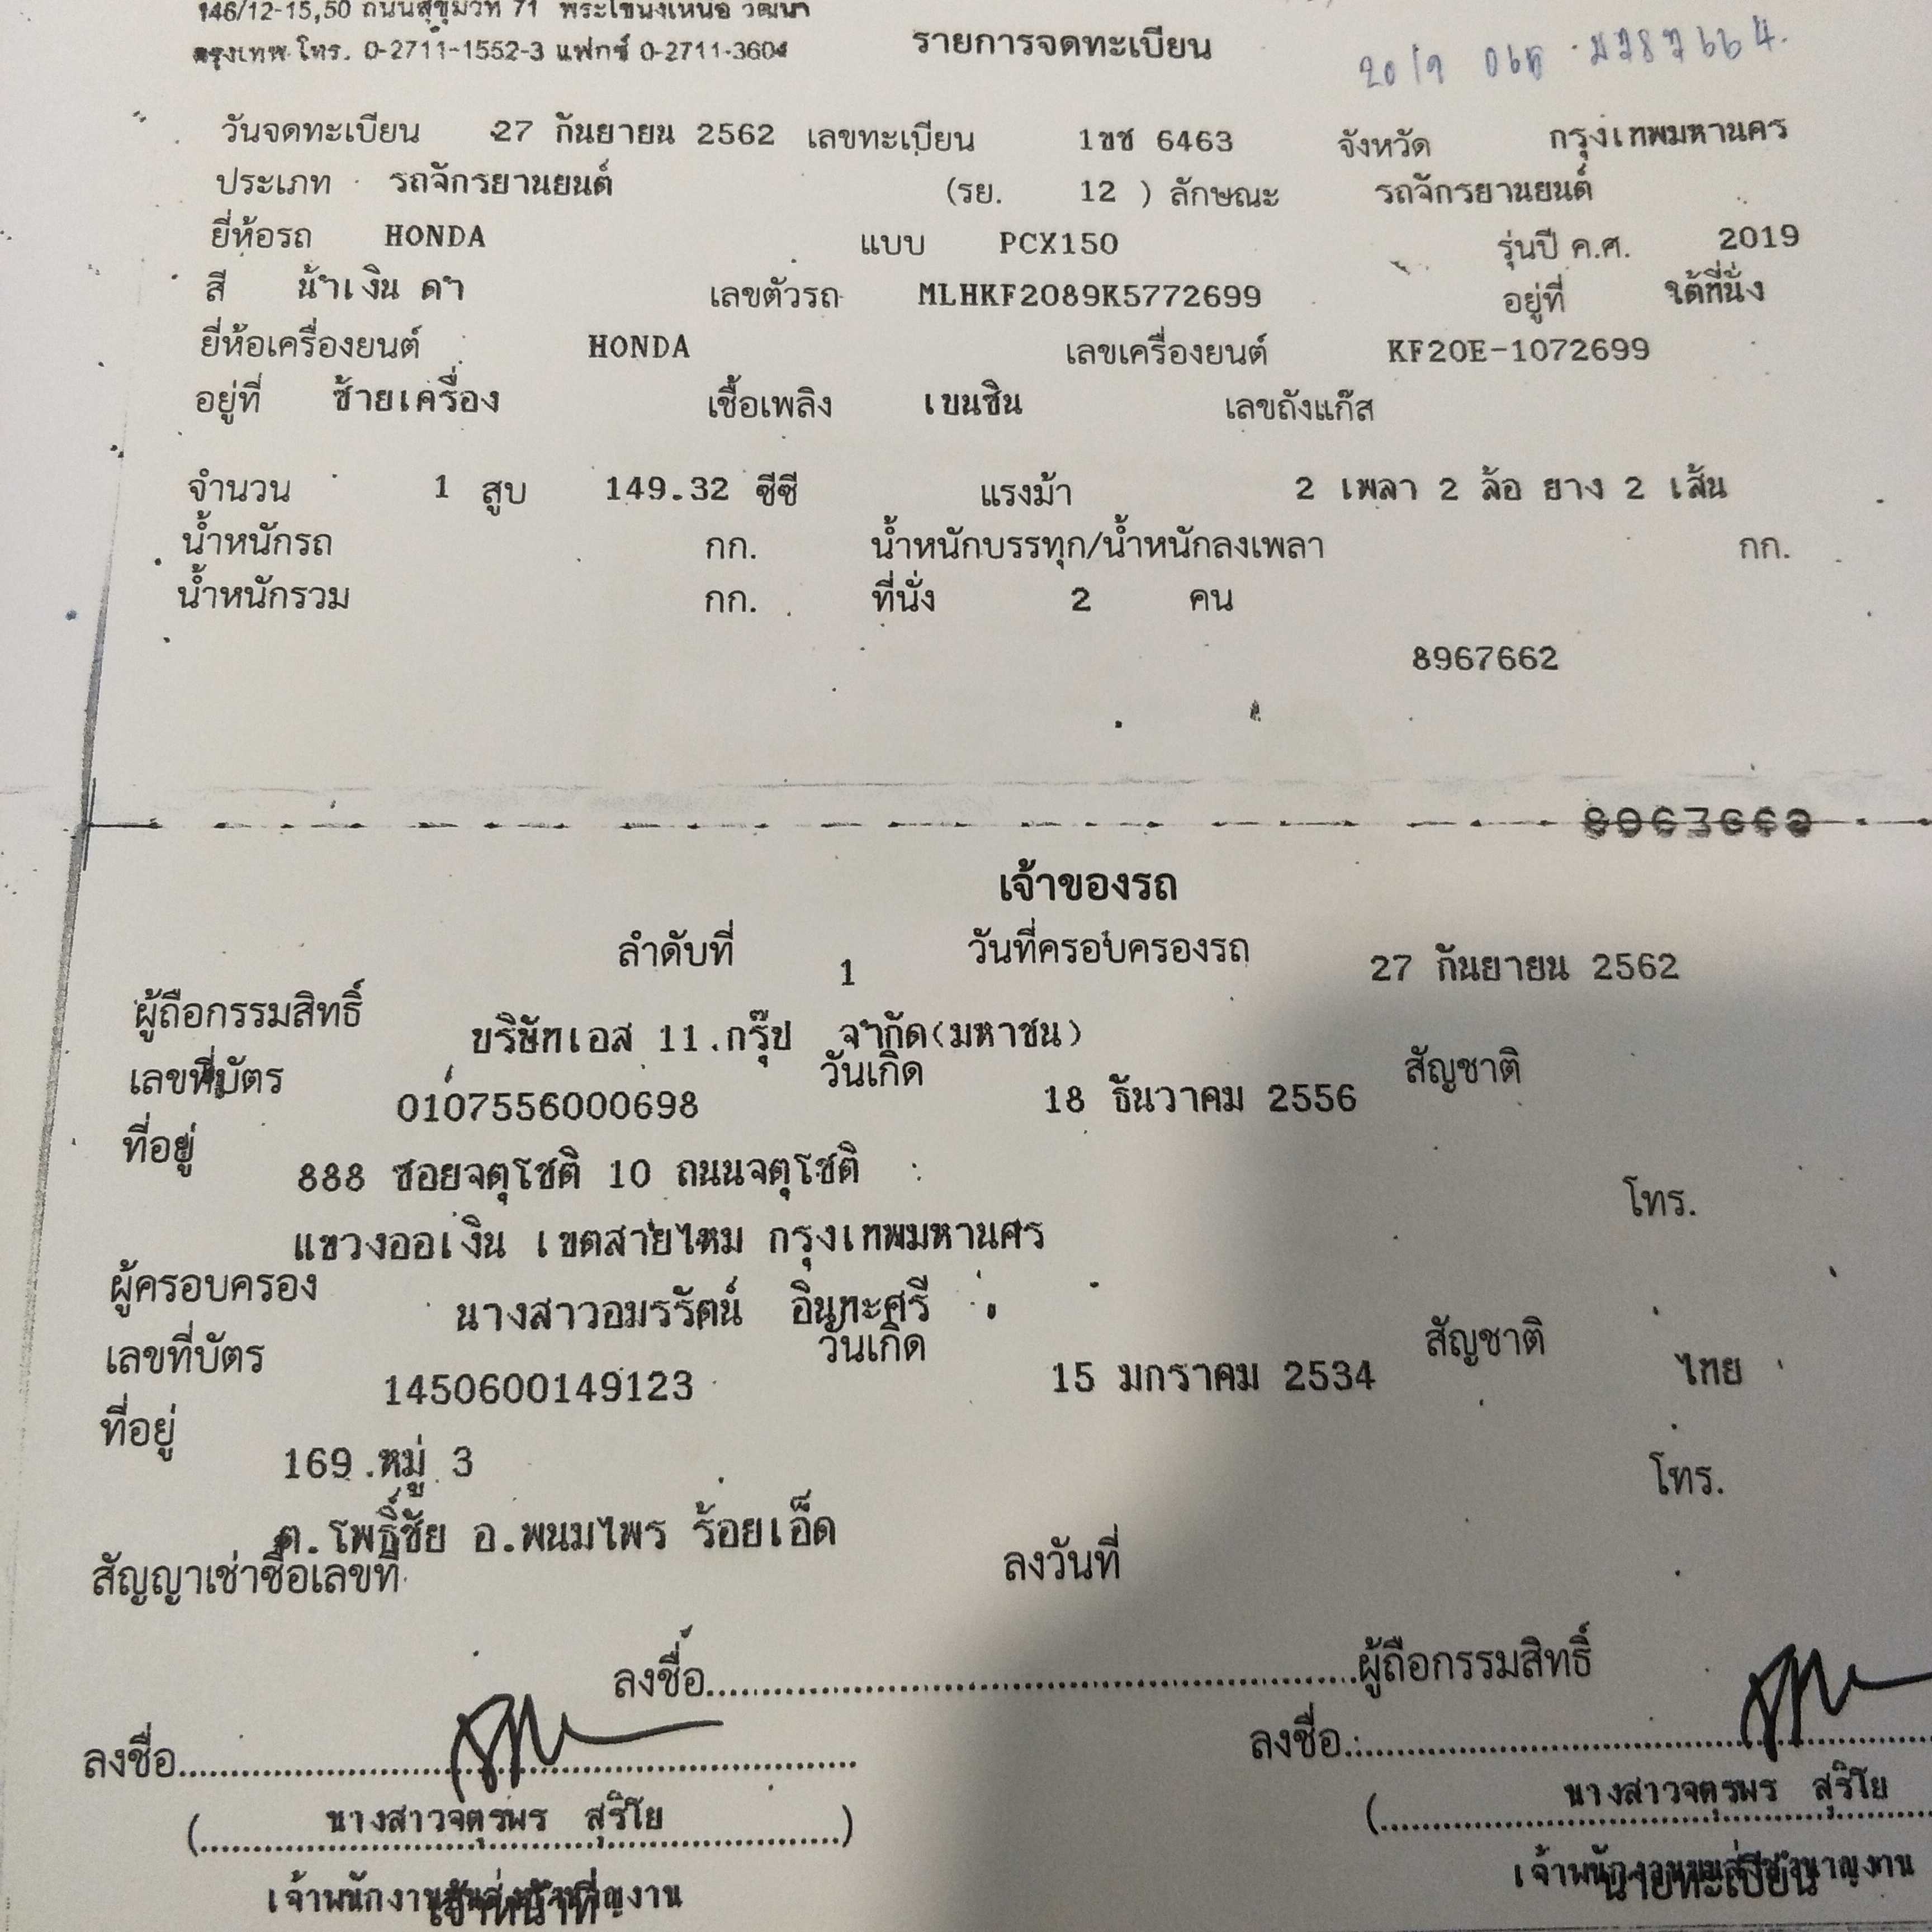 146/12-15,50 ถนนสุขุมวิท 71 พระโขนงเหนือ วัฒนา
กรุงเทพ โทร. 0-2711-1552-3 แฟกซ์ 0-2711-3604
รายการจดทะเบียน
วันจดทะเบียน 27 กันยายน 2562 เลขทะเบียน 1ขช 6463 จังหวัด กรุงเทพมหานคร
ประเภท รถจักรยานยนต์ (รย. 12 ) ลักษณะ รถจักรยานยนต์
ยี่ห้อรถ HONDA แบบ PCX150 รุ่นปี ค.ศ. 2019
สี น้ำเงิน ดำ เลขตัวรถ MLHKF2089K5772699 อยู่ที่ ใต้ที่นั่ง
ยี่ห้อเครื่องยนต์ HONDA เลขเครื่องยนต์ KF20E-1072699
อยู่ที่ ซ้ายเครื่อง เชื้อเพลิง เบนซิน เลขถังแก๊ส
จำนวน 1 สูบ 149.32 ซีซี แรงม้า 2 เพลา 2 ล้อ ยาง 2 เส้น
น้ำหนักรถ กก. น้ำหนักบรรทุก/น้ำหนักลงเพลา กก.
น้ำหนักรวม กก. ที่นั่ง 2 คน
8967662
8967662
เจ้าของรถ
ลำดับที่ 1 วันที่ครอบครองรถ 27 กันยายน 2562
ผู้ถือกรรมสิทธิ์ บริษัทเอส 11.กรุ๊ป จำกัด(มหาชน)
เลขที่บัตร 0107556000698 วันเกิด 18 ธันวาคม 2556 สัญชาติ
ที่อยู่ 888 ซอยจตุโชติ 10 ถนนจตุโชติ โทร.
แขวงออเงิน เขตสายไหม กรุงเทพมหานคร
ผู้ครอบครอง นางสาวอมรรัตน์ อินทะศรี
เลขที่บัตร 1450600149123 วันเกิด 15 มกราคม 2534 สัญชาติ ไทย
ที่อยู่ 169 หมู่ 3 โทร.
ต.โพธิ์ชัย อ.พนมไพร ร้อยเอ็ด
สัญญาเช่าซื้อเลขที่ ลงวันที่
ลงชื่อ ผู้ถือกรรมสิทธิ์
ลงชื่อ ลงชื่อ
( นางสาวจตุรพร สุริโย ) ( นางสาวจตุรพร สุริโย
เจ้าหน้าที่ นายทะเบียน